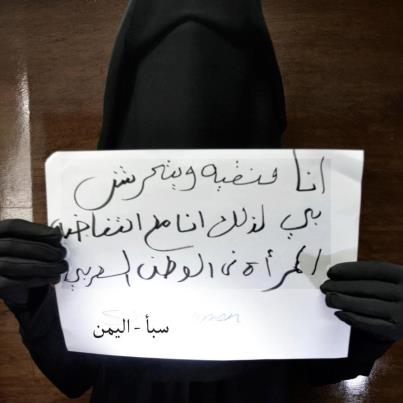 انا منقبه ويتحرش
بي لذلك انا مع انتفاضه
المرأة فى الوطن العربي
سبأ - اليمن